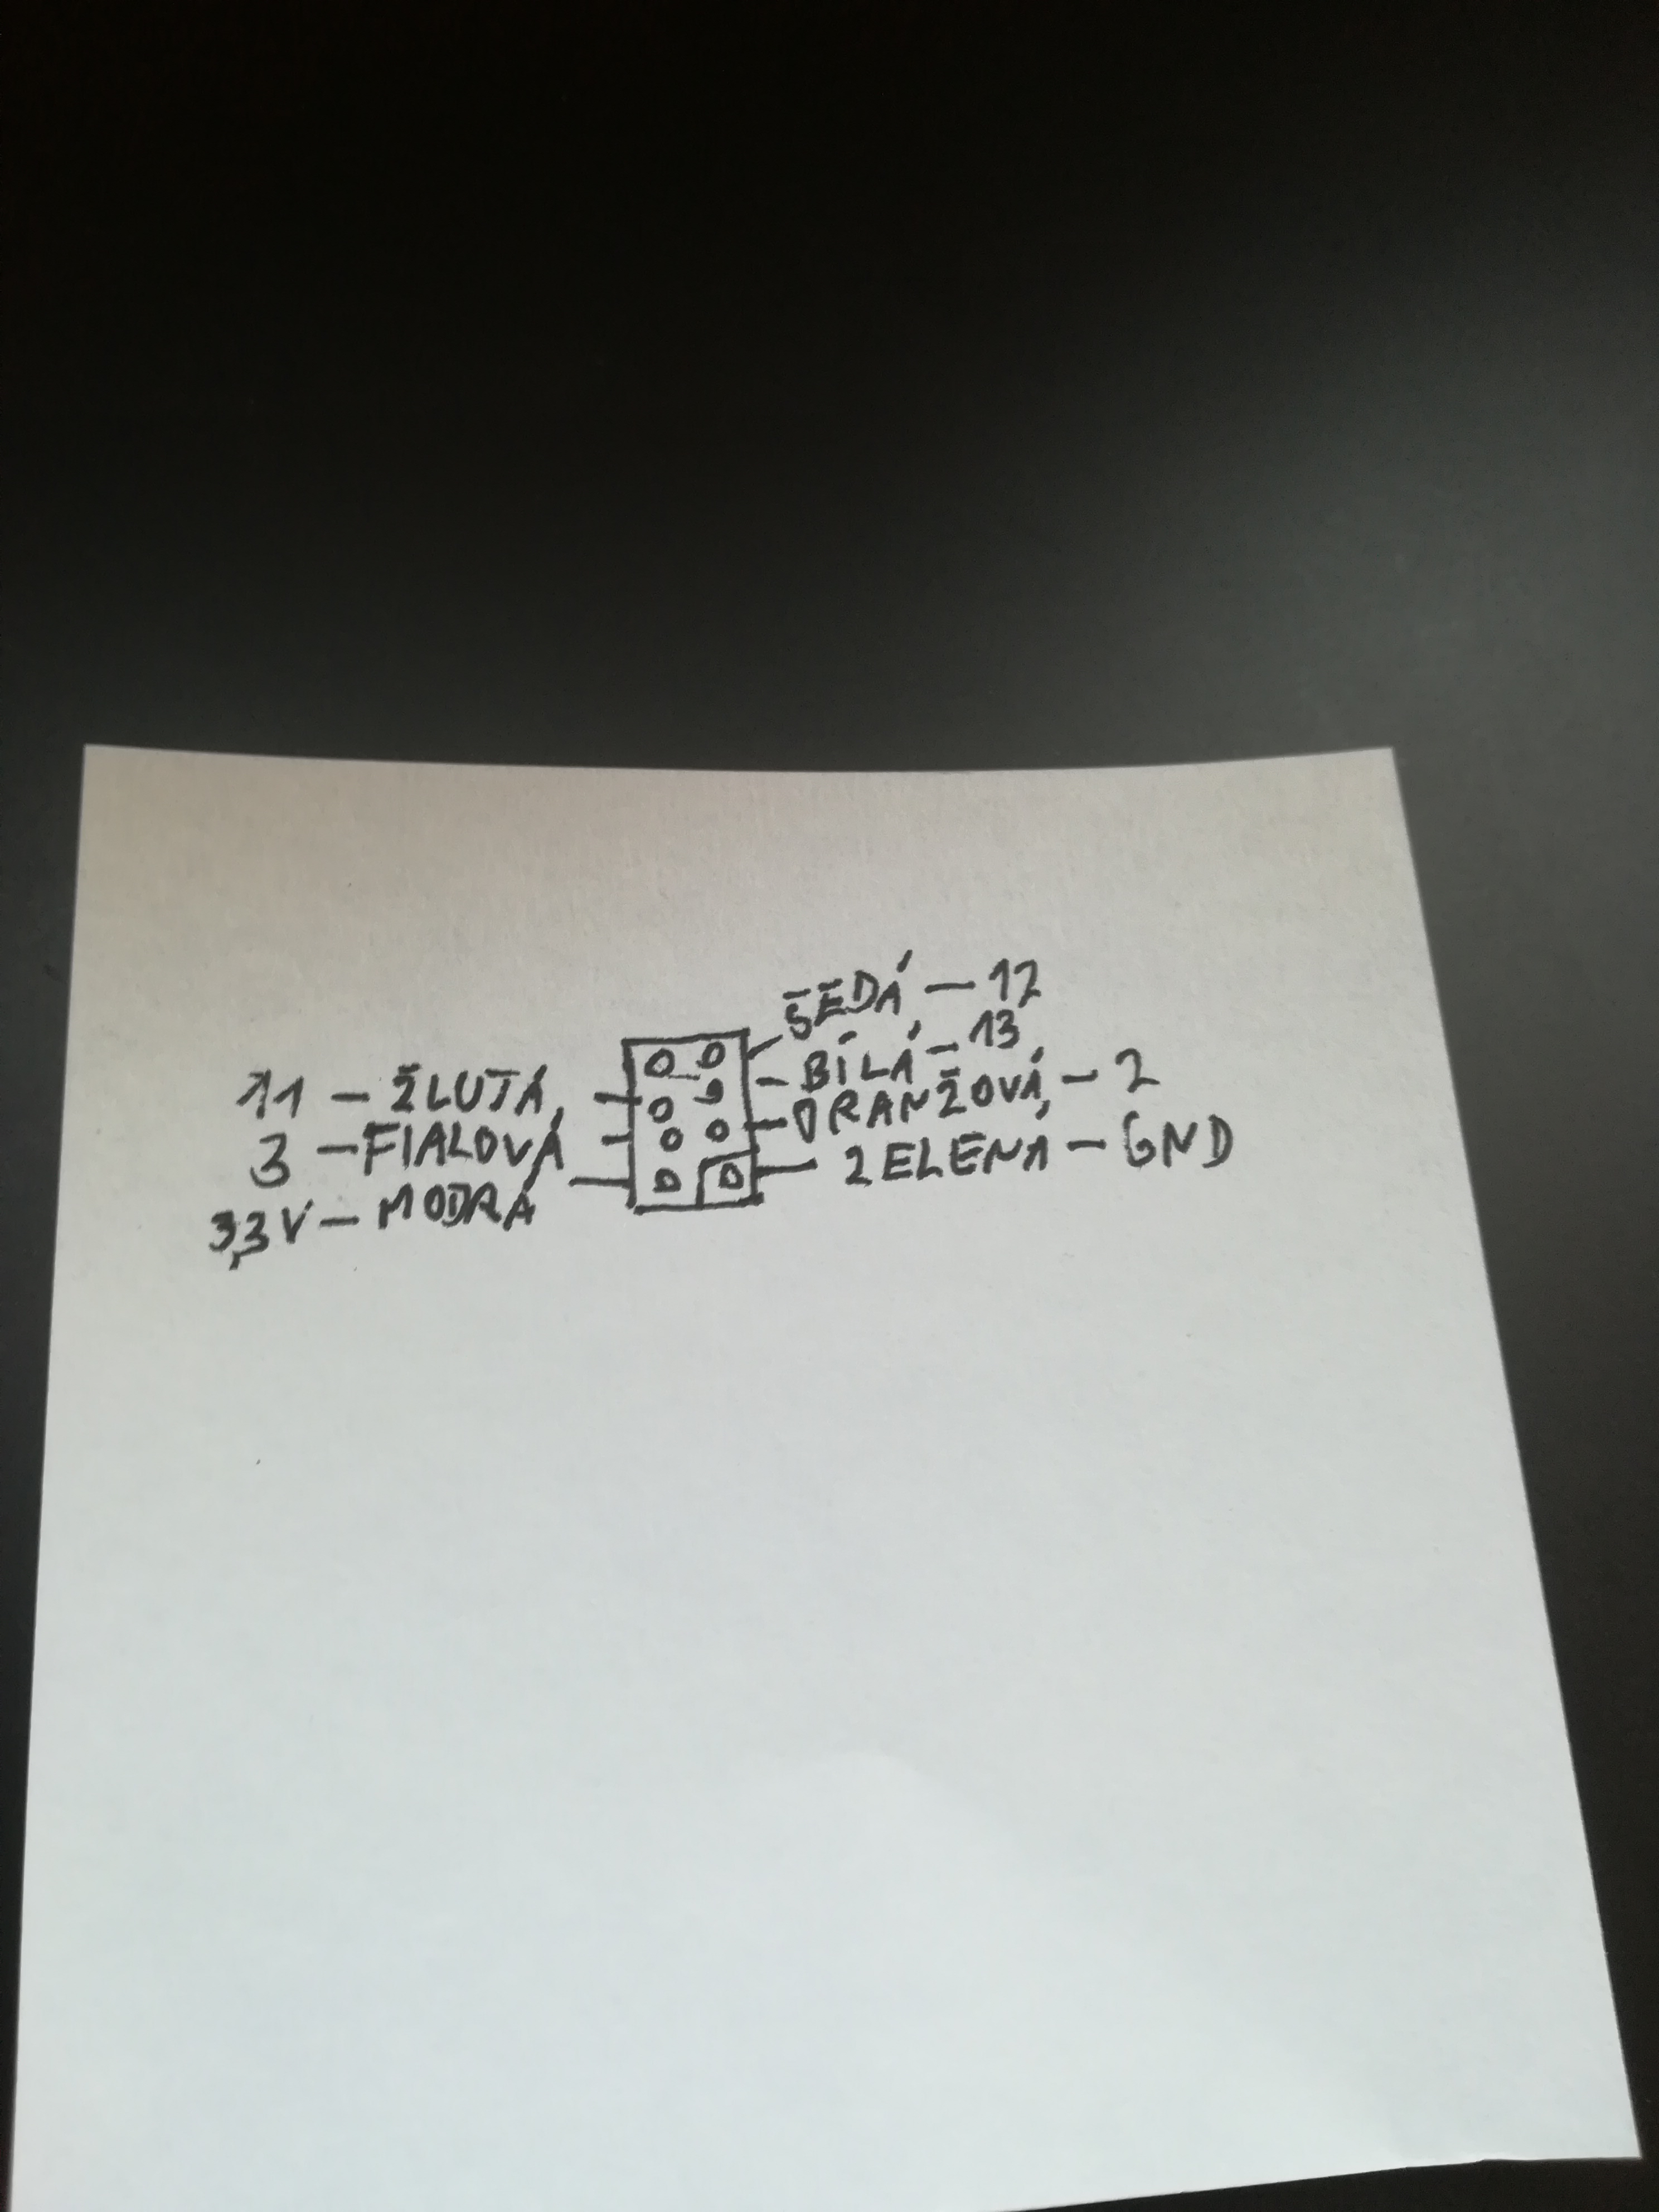 ŠEDÁ - 12
BÍLÁ - 13
11 - ŽLUTÁ
ORANŽOVÁ - 2
3 - FIALOVÁ
ZELENÁ - GND
3,3V - MODRÁ